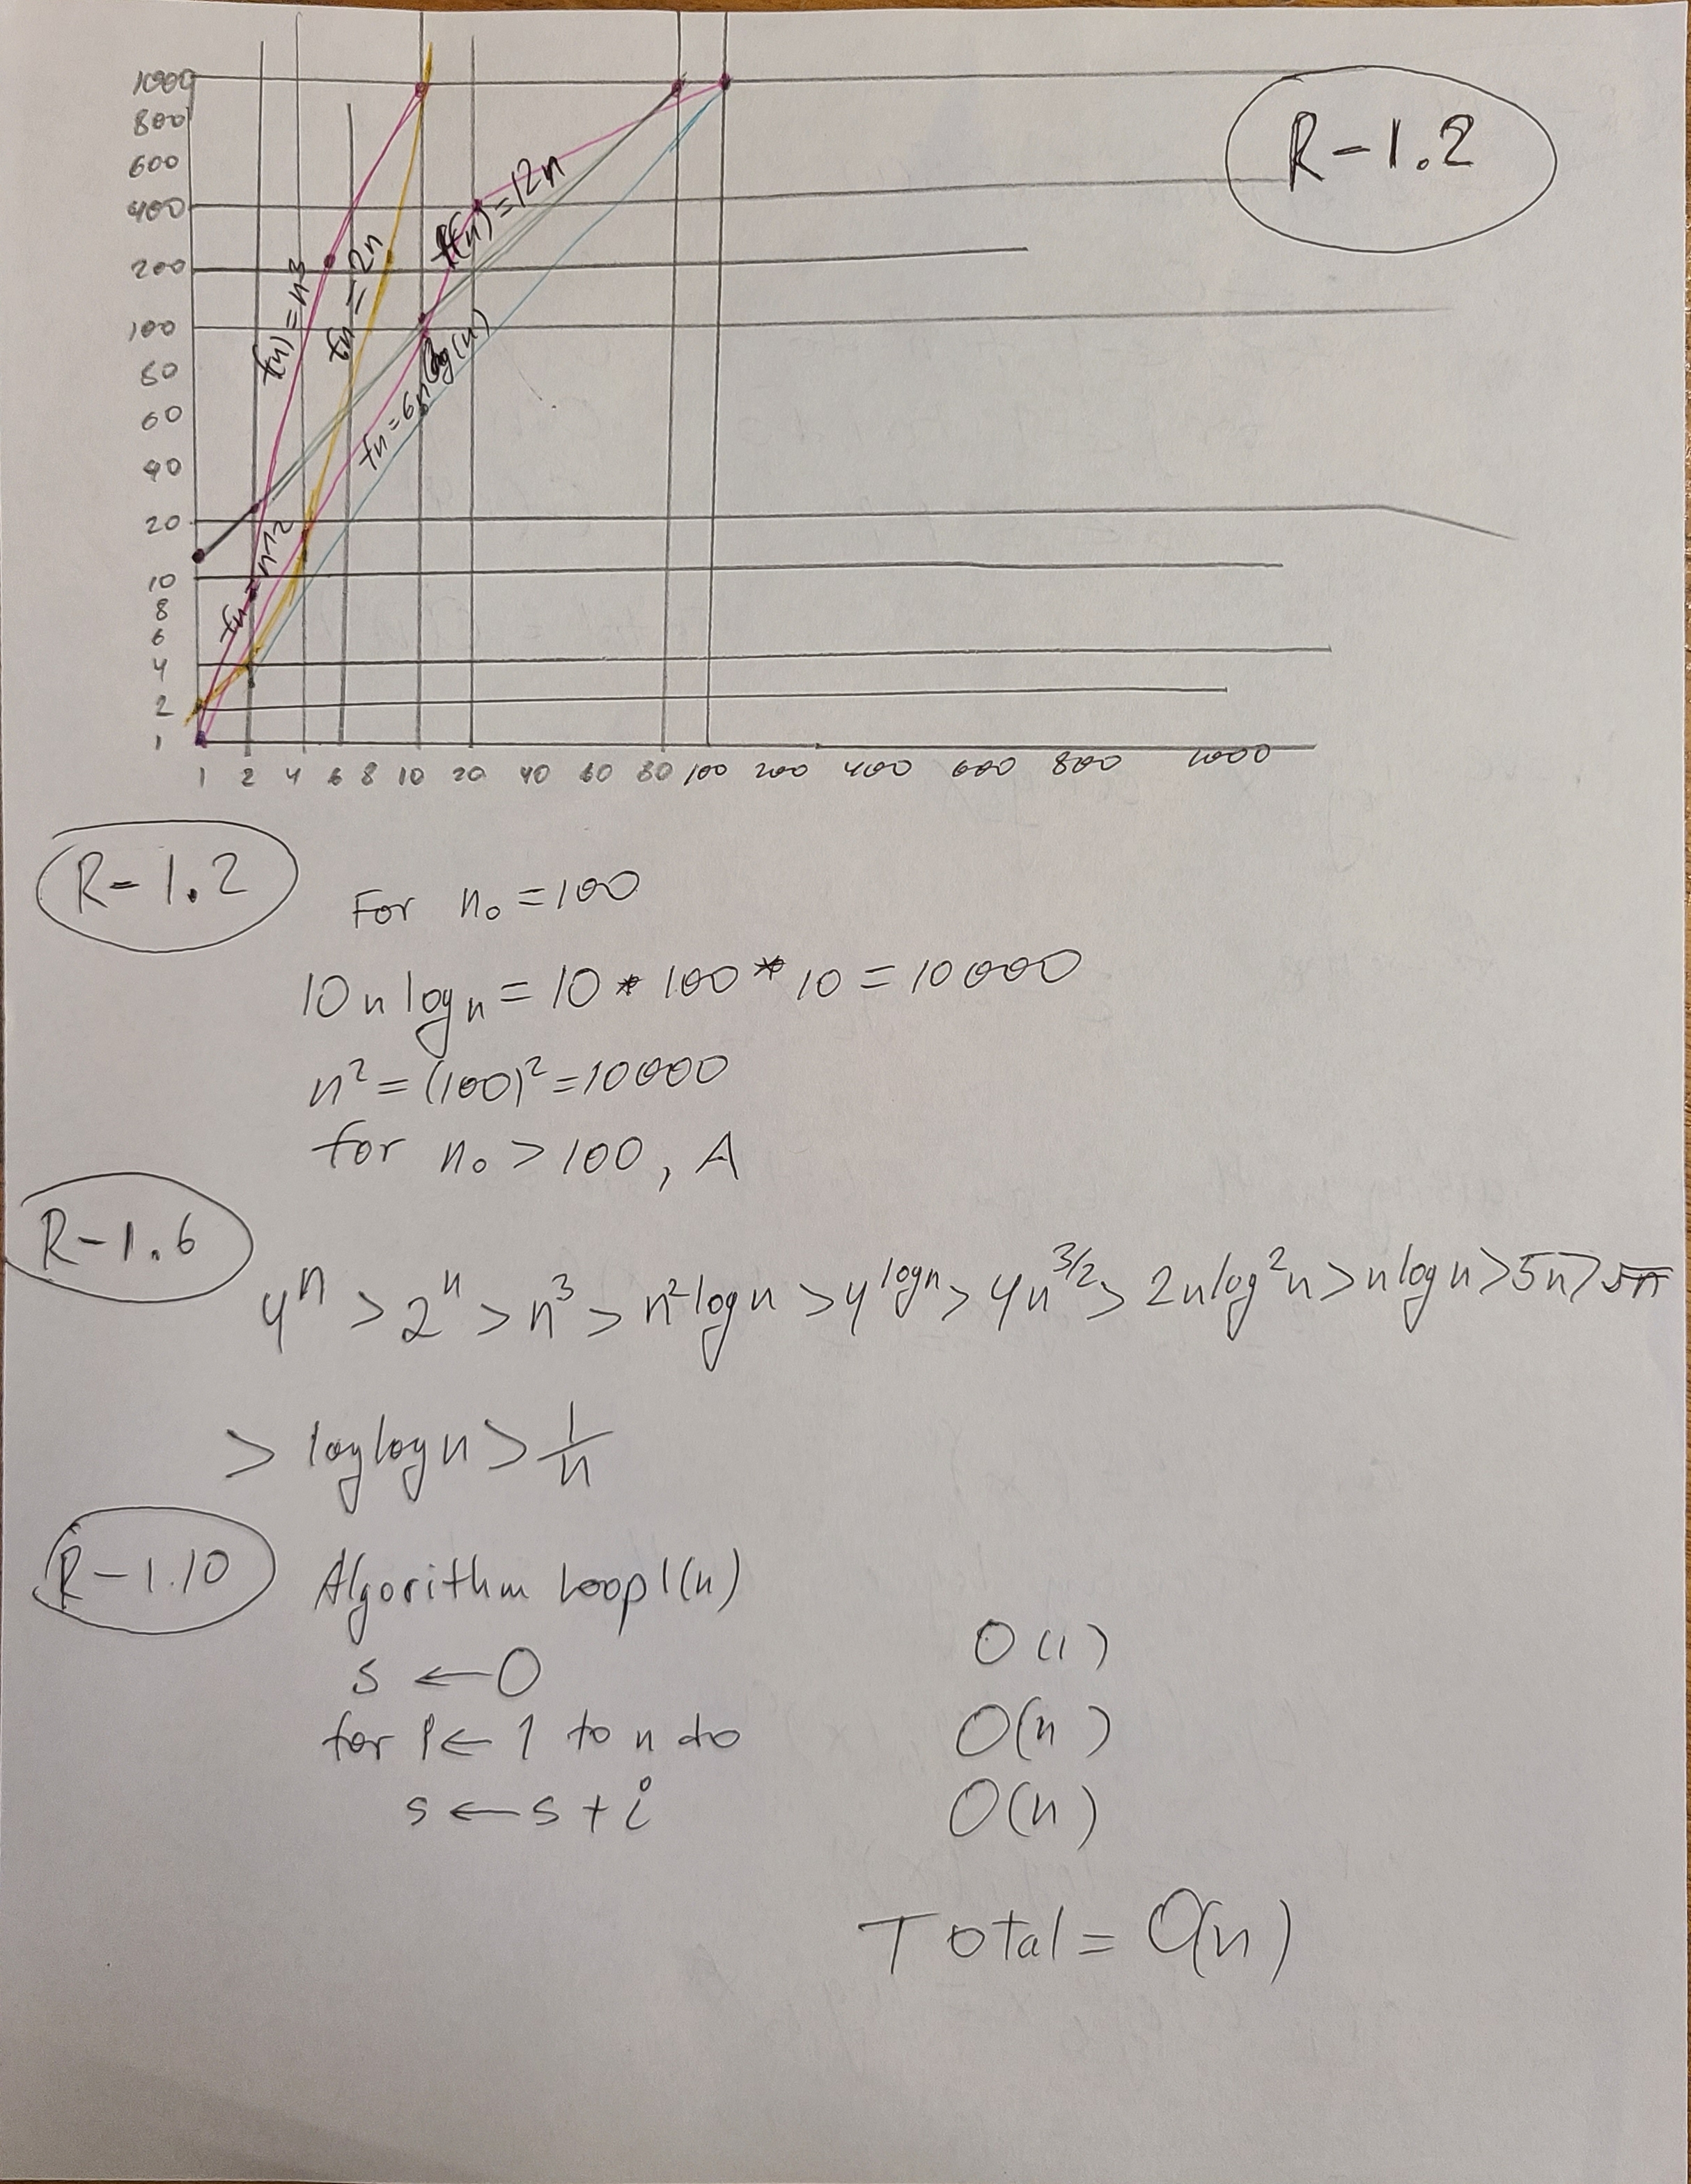 1000
800
600
400
200
100
80
60
40
20
10
8
6
4
2
1
1 2 4 6 8 10 20 40 60 80 100 200 400 600 800 1000
f(n) = n^3
fn = 2n
f(n) = 12n
fn = 6n log(n)
fn = n^2
R-1.2
R-1.2
For n₀ = 100
10n log n = 10 * 100 * 10 = 10000
n² = (100)² = 10000
for n₀ > 100, A
R-1.6
4ⁿ > 2ⁿ > n³ > n² log n > 4^log n > 4n^3/2 > 2n log² n > n log n > 5n >
> log log n > 1/n
R-1.10
Algorithm Loop1(n)
s ← 0 O(1)
for i ← 1 to n do O(n)
s ← s + i O(n)
Total = O(n)